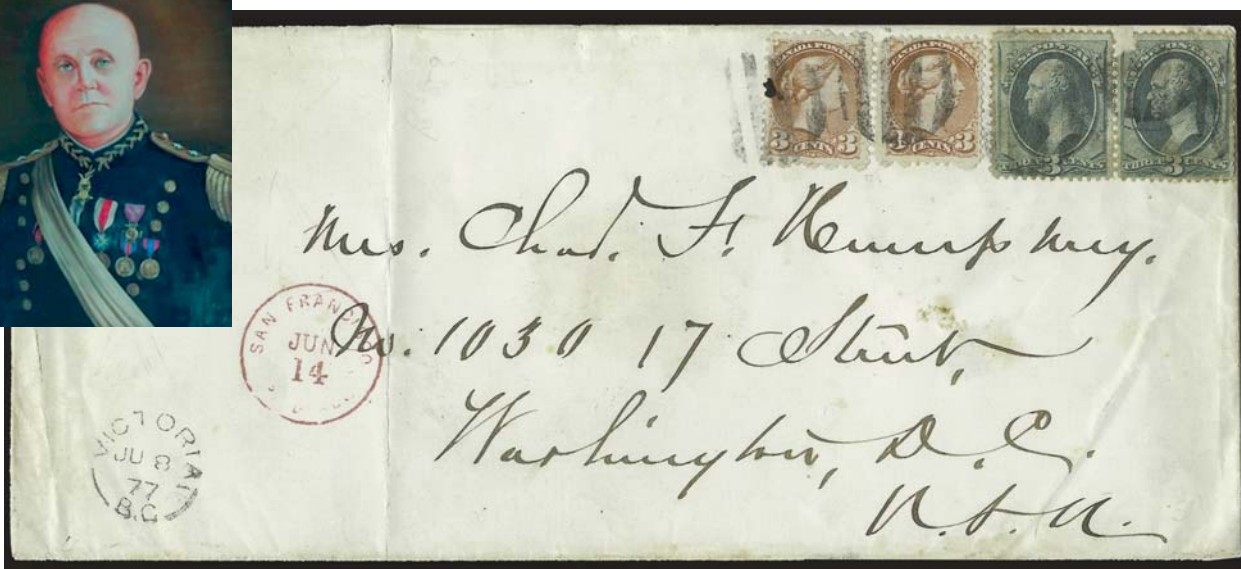 CANADA POSTAGE
3 CENTS 3
CANADA POSTAGE
3 CENTS 3
THREE 3 CENTS
THREE 3 CENTS
Mrs. Chas. F. Humphrey.
No. 1030 17 Street,
Washington, D.C.
U.S.A.
SAN FRANCISCO
JUN
14
VICTORIA
JU 8
77
B.C